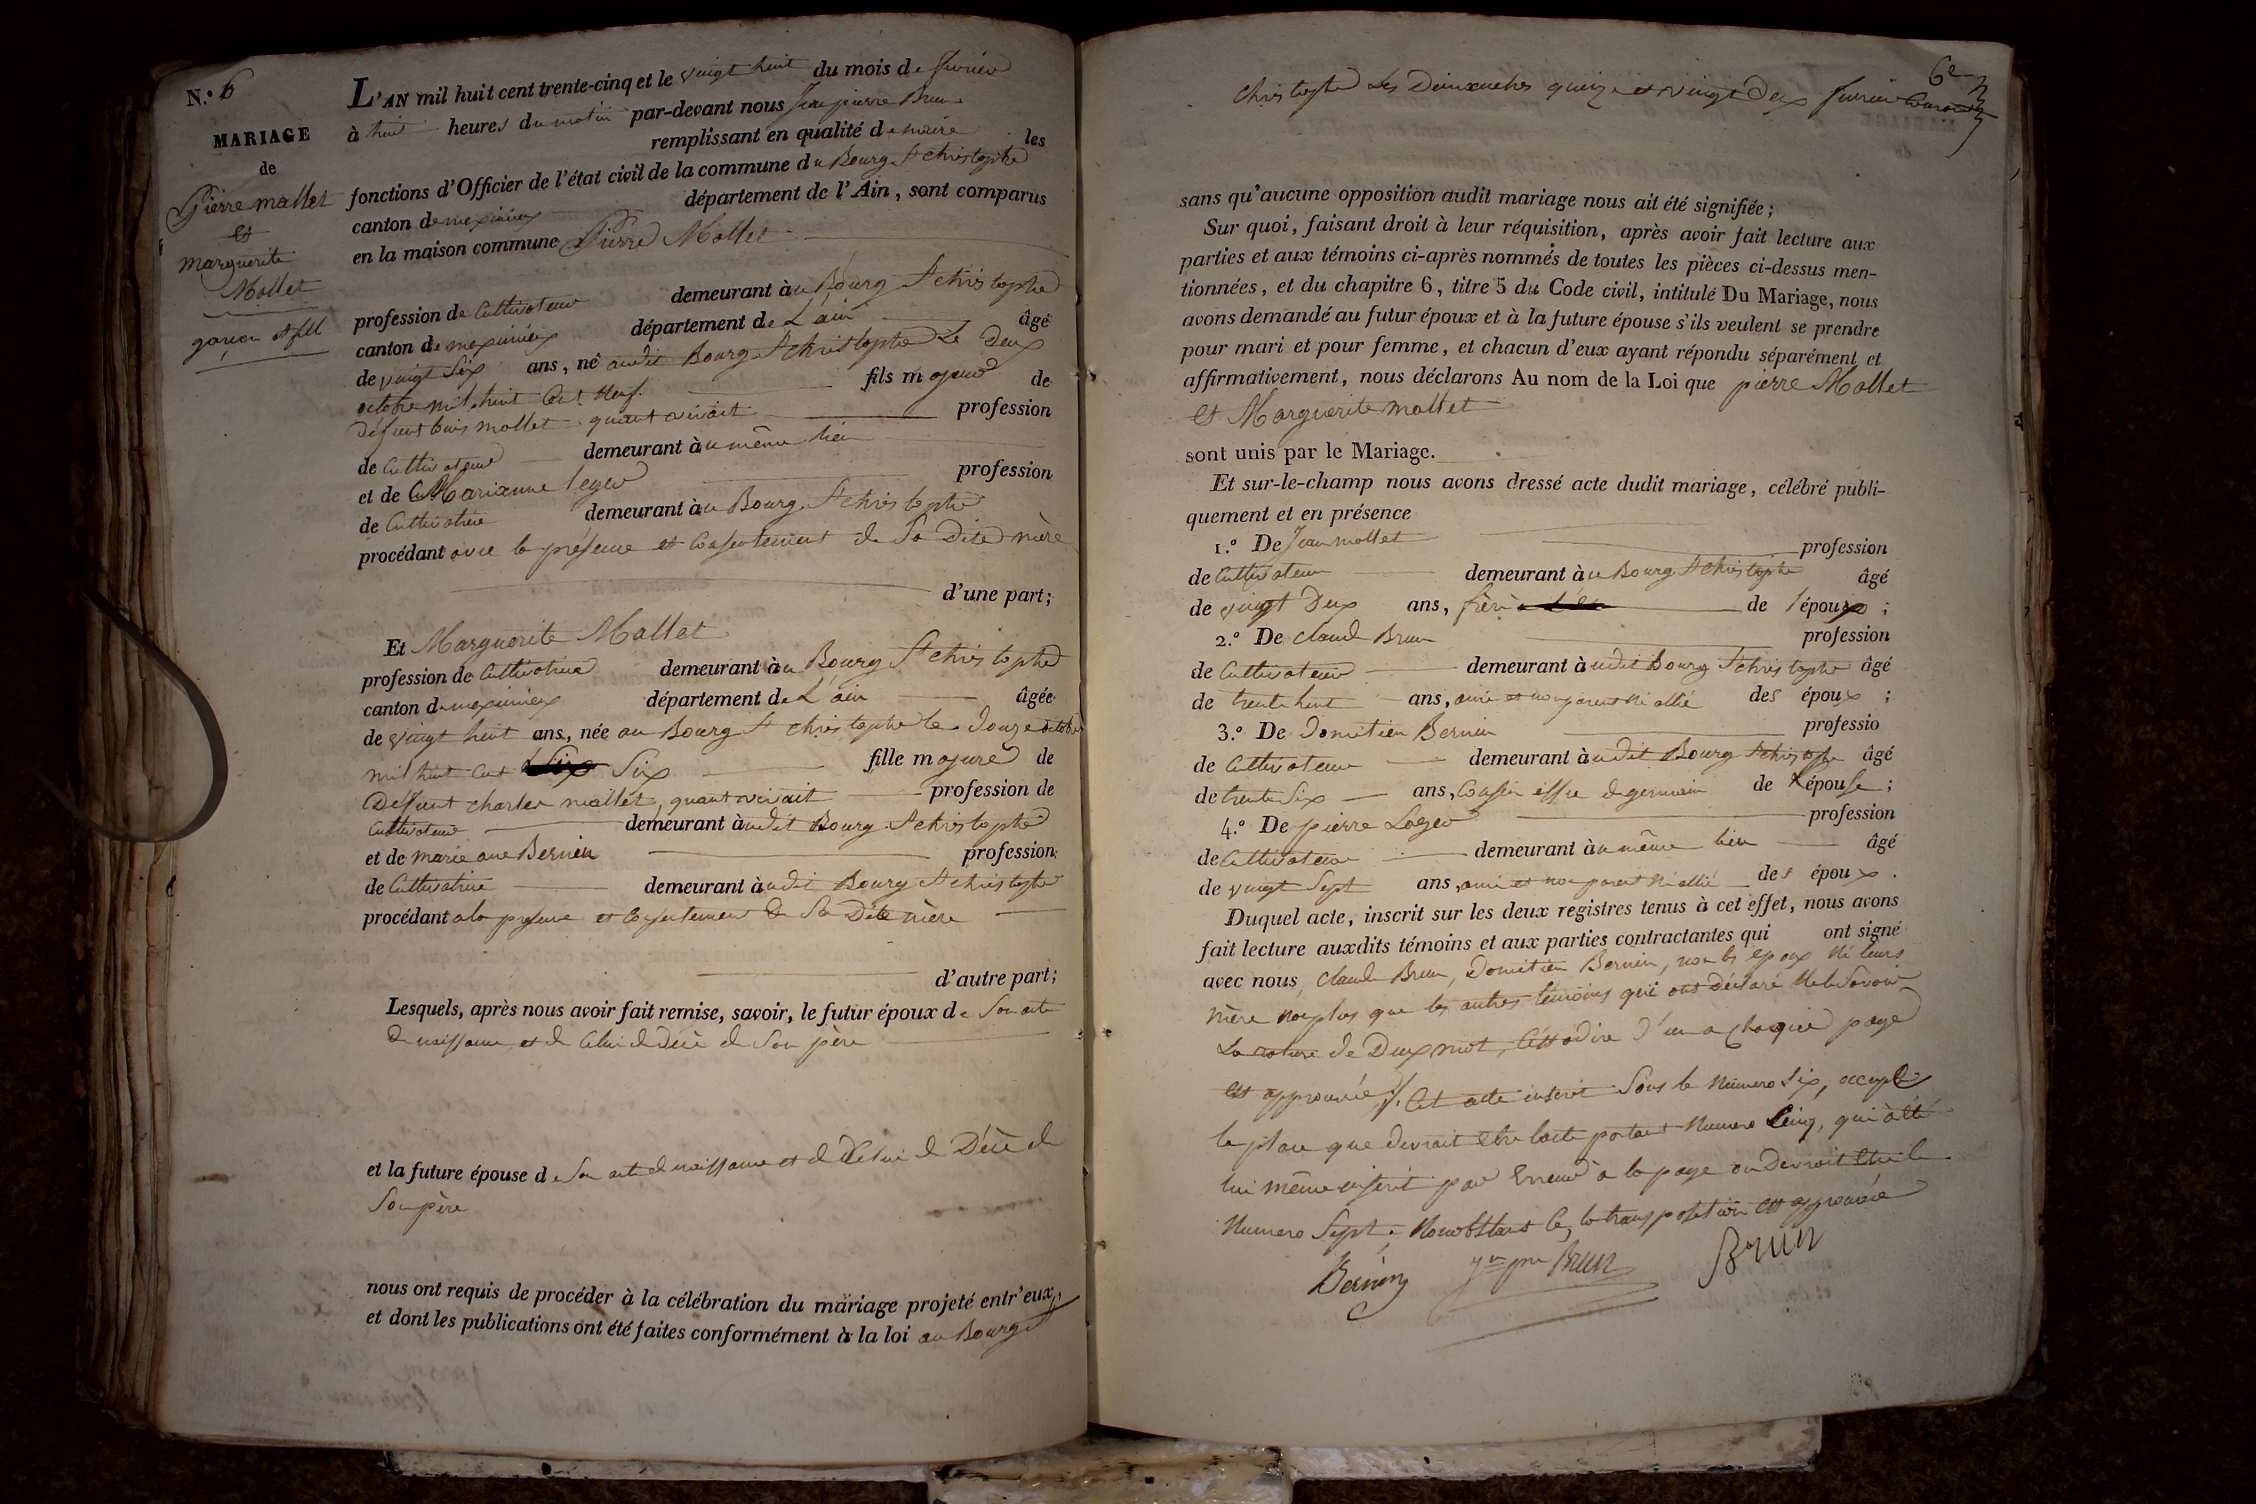 N.º 6
MARIAGE
de
Pierre mollet
et
marguerite
Mollet
garçon et fille
L'AN mil huit cent trente-cinq et le vingt huit du mois de fevrier
à huit heures du matin par-devant nous Jean pierre Brun
remplissant en qualité de maire les
fonctions d'Officier de l'état civil de la commune du Bourg St christophe
canton de meximieux département de l'Ain, sont comparus
en la maison commune Pierre Mollet
profession de Cultivateur demeurant au Bourg St christophe
canton de meximieux département de L'ain âgé
de vingt Six ans, né audit Bourg St christophe Le Deux
octobre mil huit Cent Neuf. fils majeur de
Defunt Louis mollet quant vivait profession
de Cultivateur demeurant au même lieu
et de Marianne leger profession
de Cultivatrice demeurant au Bourg St christophe
procédant avec la présence et Consentement de Sa Dite mère
d'une part;
Et Marguerite Mollet
profession de Cultivatrice demeurant au Bourg St christophe
canton de meximieux département de L'ain âgée
de vingt huit ans, née au Bourg St christophe le Douze octobre
mil huit Cent Six fille majeure de
Deffunt charles mollet, quant vivait profession de
Cultivateur demeurant audit Bourg St christophe
et de marie anne Bernin profession
de Cultivatrice demeurant audit Bourg St christophe
procédant a la presence et Consentement de Sa Dite mère
d'autre part;
Lesquels, après nous avoir fait remise, savoir, le futur époux de Son acte
de naissance et de Celui de décè de Son père
et la future épouse de Son acte de naissance et de Celui de Décè de
Son père
nous ont requis de procéder à la célébration du mariage projeté entr'eux,
et dont les publications ont été faites conformément à la loi au Bourg St
6e
christophe Les Dimanches quinze et vingt Deux fevrier Courant
sans qu'aucune opposition audit mariage nous ait été signifiée;
Sur quoi, faisant droit à leur réquisition, après avoir fait lecture aux
parties et aux témoins ci-après nommés de toutes les pièces ci-dessus men-
tionnées, et du chapitre 6, titre 5 du Code civil, intitulé Du Mariage, nous
avons demandé au futur époux et à la future épouse s'ils veulent se prendre
pour mari et pour femme, et chacun d'eux ayant répondu séparément et
affirmativement, nous déclarons Au nom de la Loi que pierre Mollet
et Marguerite mollet
sont unis par le Mariage.
Et sur-le-champ nous avons dressé acte dudit mariage, célébré publi-
quement et en présence
1.º De Jean mollet profession
de Cultivateur demeurant au Bourg St christophe âgé
de vingt Deux ans, frère de l'époux;
2.º De claude Brun profession
de Cultivateur demeurant audit Bourg St christophe âgé
de trente huit ans, ami et non parent Ni allié des époux;
3.º De Domitien Bernin professio
de Cultivateur demeurant audit Bourg St christophe âgé
de trente Six ans, Cousin issu de germain de L'épouse;
4.º De pierre Loeger profession
de Cultivateur demeurant au même lieu âgé
de vingt Sept ans, ami et non parent Ni allié des époux.
Duquel acte, inscrit sur les deux registres tenus à cet effet, nous avons
fait lecture auxdits témoins et aux parties contractantes qui ont signé
avec nous, claude Brun, Domitien Bernin, non les epoux Ni leurs
mère non plus que les autres témoins qui ont déclaré Ne le Savoir
La rature de Deux mot, C'est a dire d'un a chaque page
est approuvée. Cet acte inscrit Sous le Numero Six, occupe
la place que devrait être l'acte portant Numero Cinq, qui a été
lui même inscrit par Erreur à la page ou devrait être le
Numero Sept. Nonobstant Ce, la transposition est approuvée
Bernin Jn pre Brun Brun